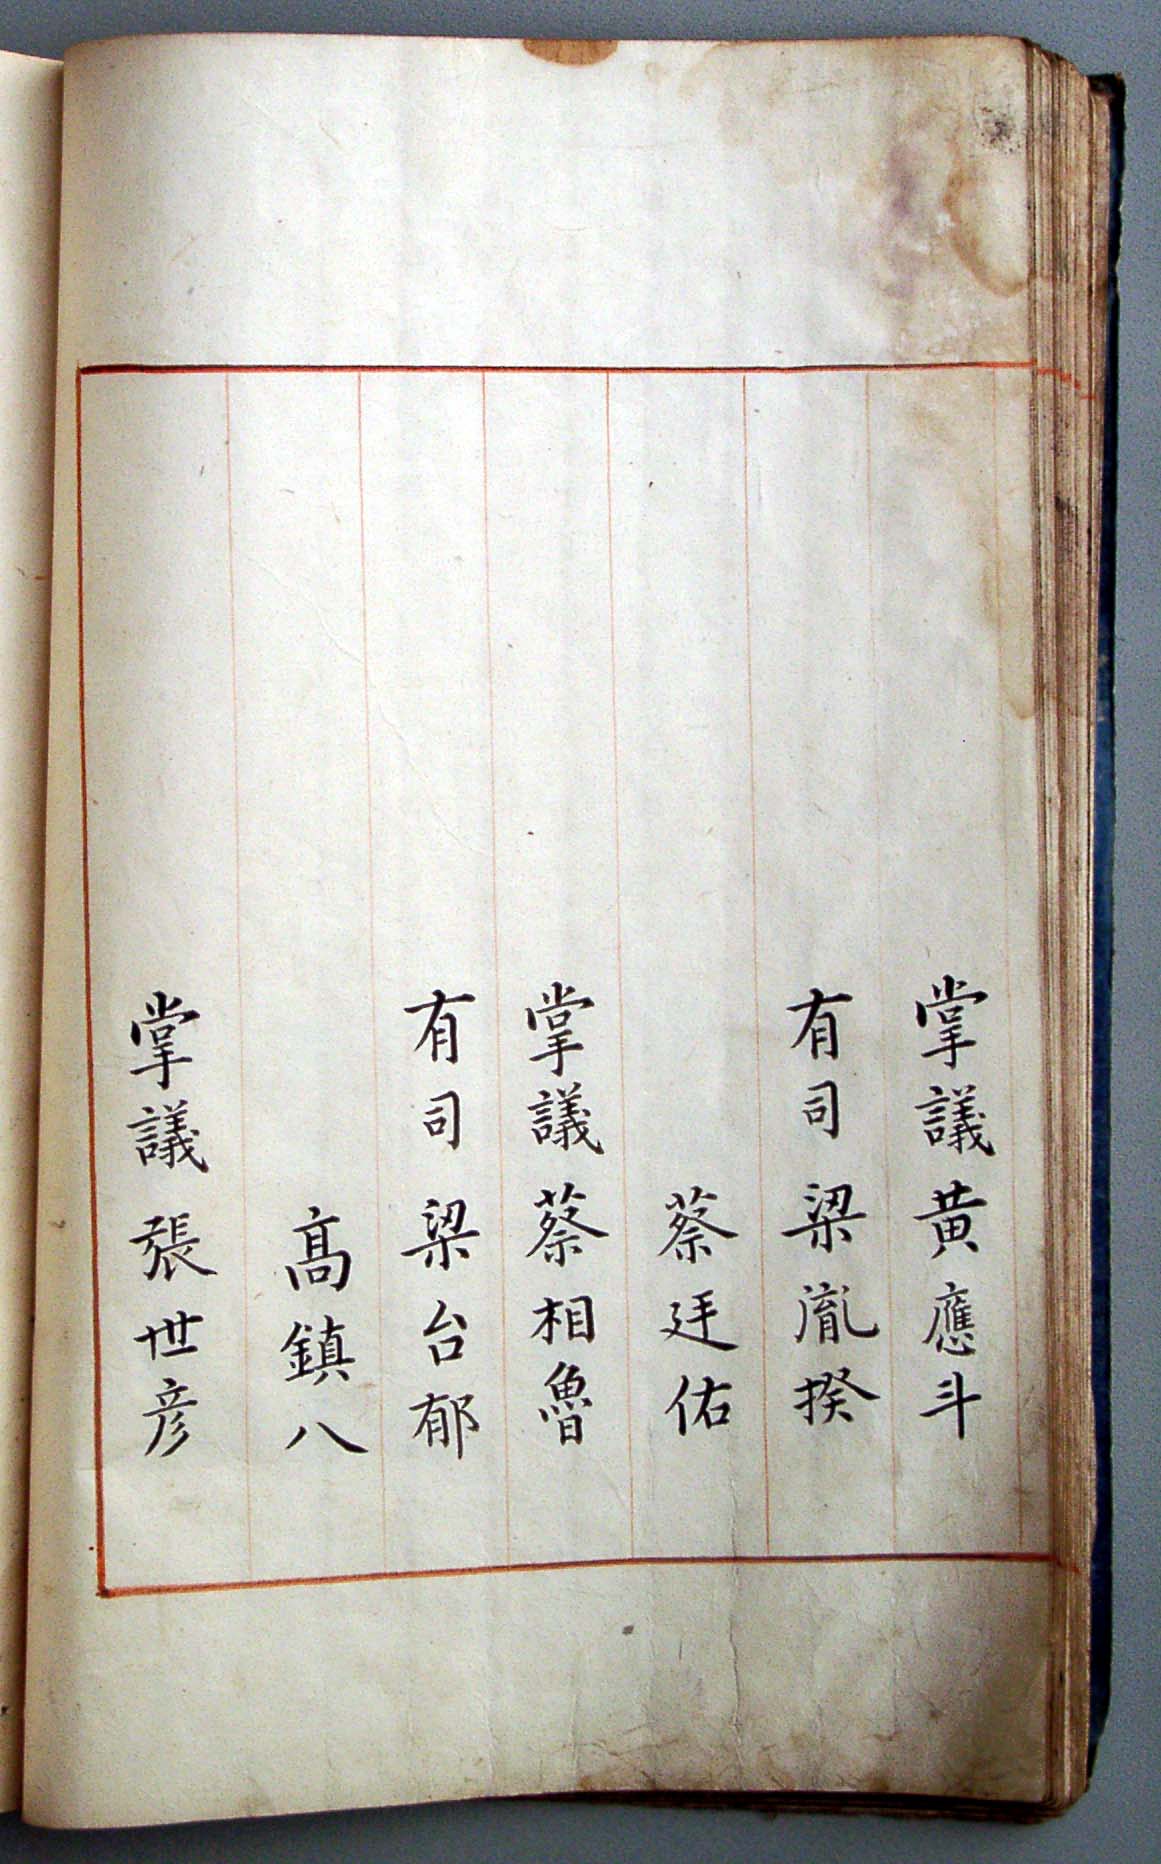 掌議黄應斗
有司梁胤揆
蔡廷佑
掌議蔡相魯
有司梁台郁
髙鎮八
掌議張世彦